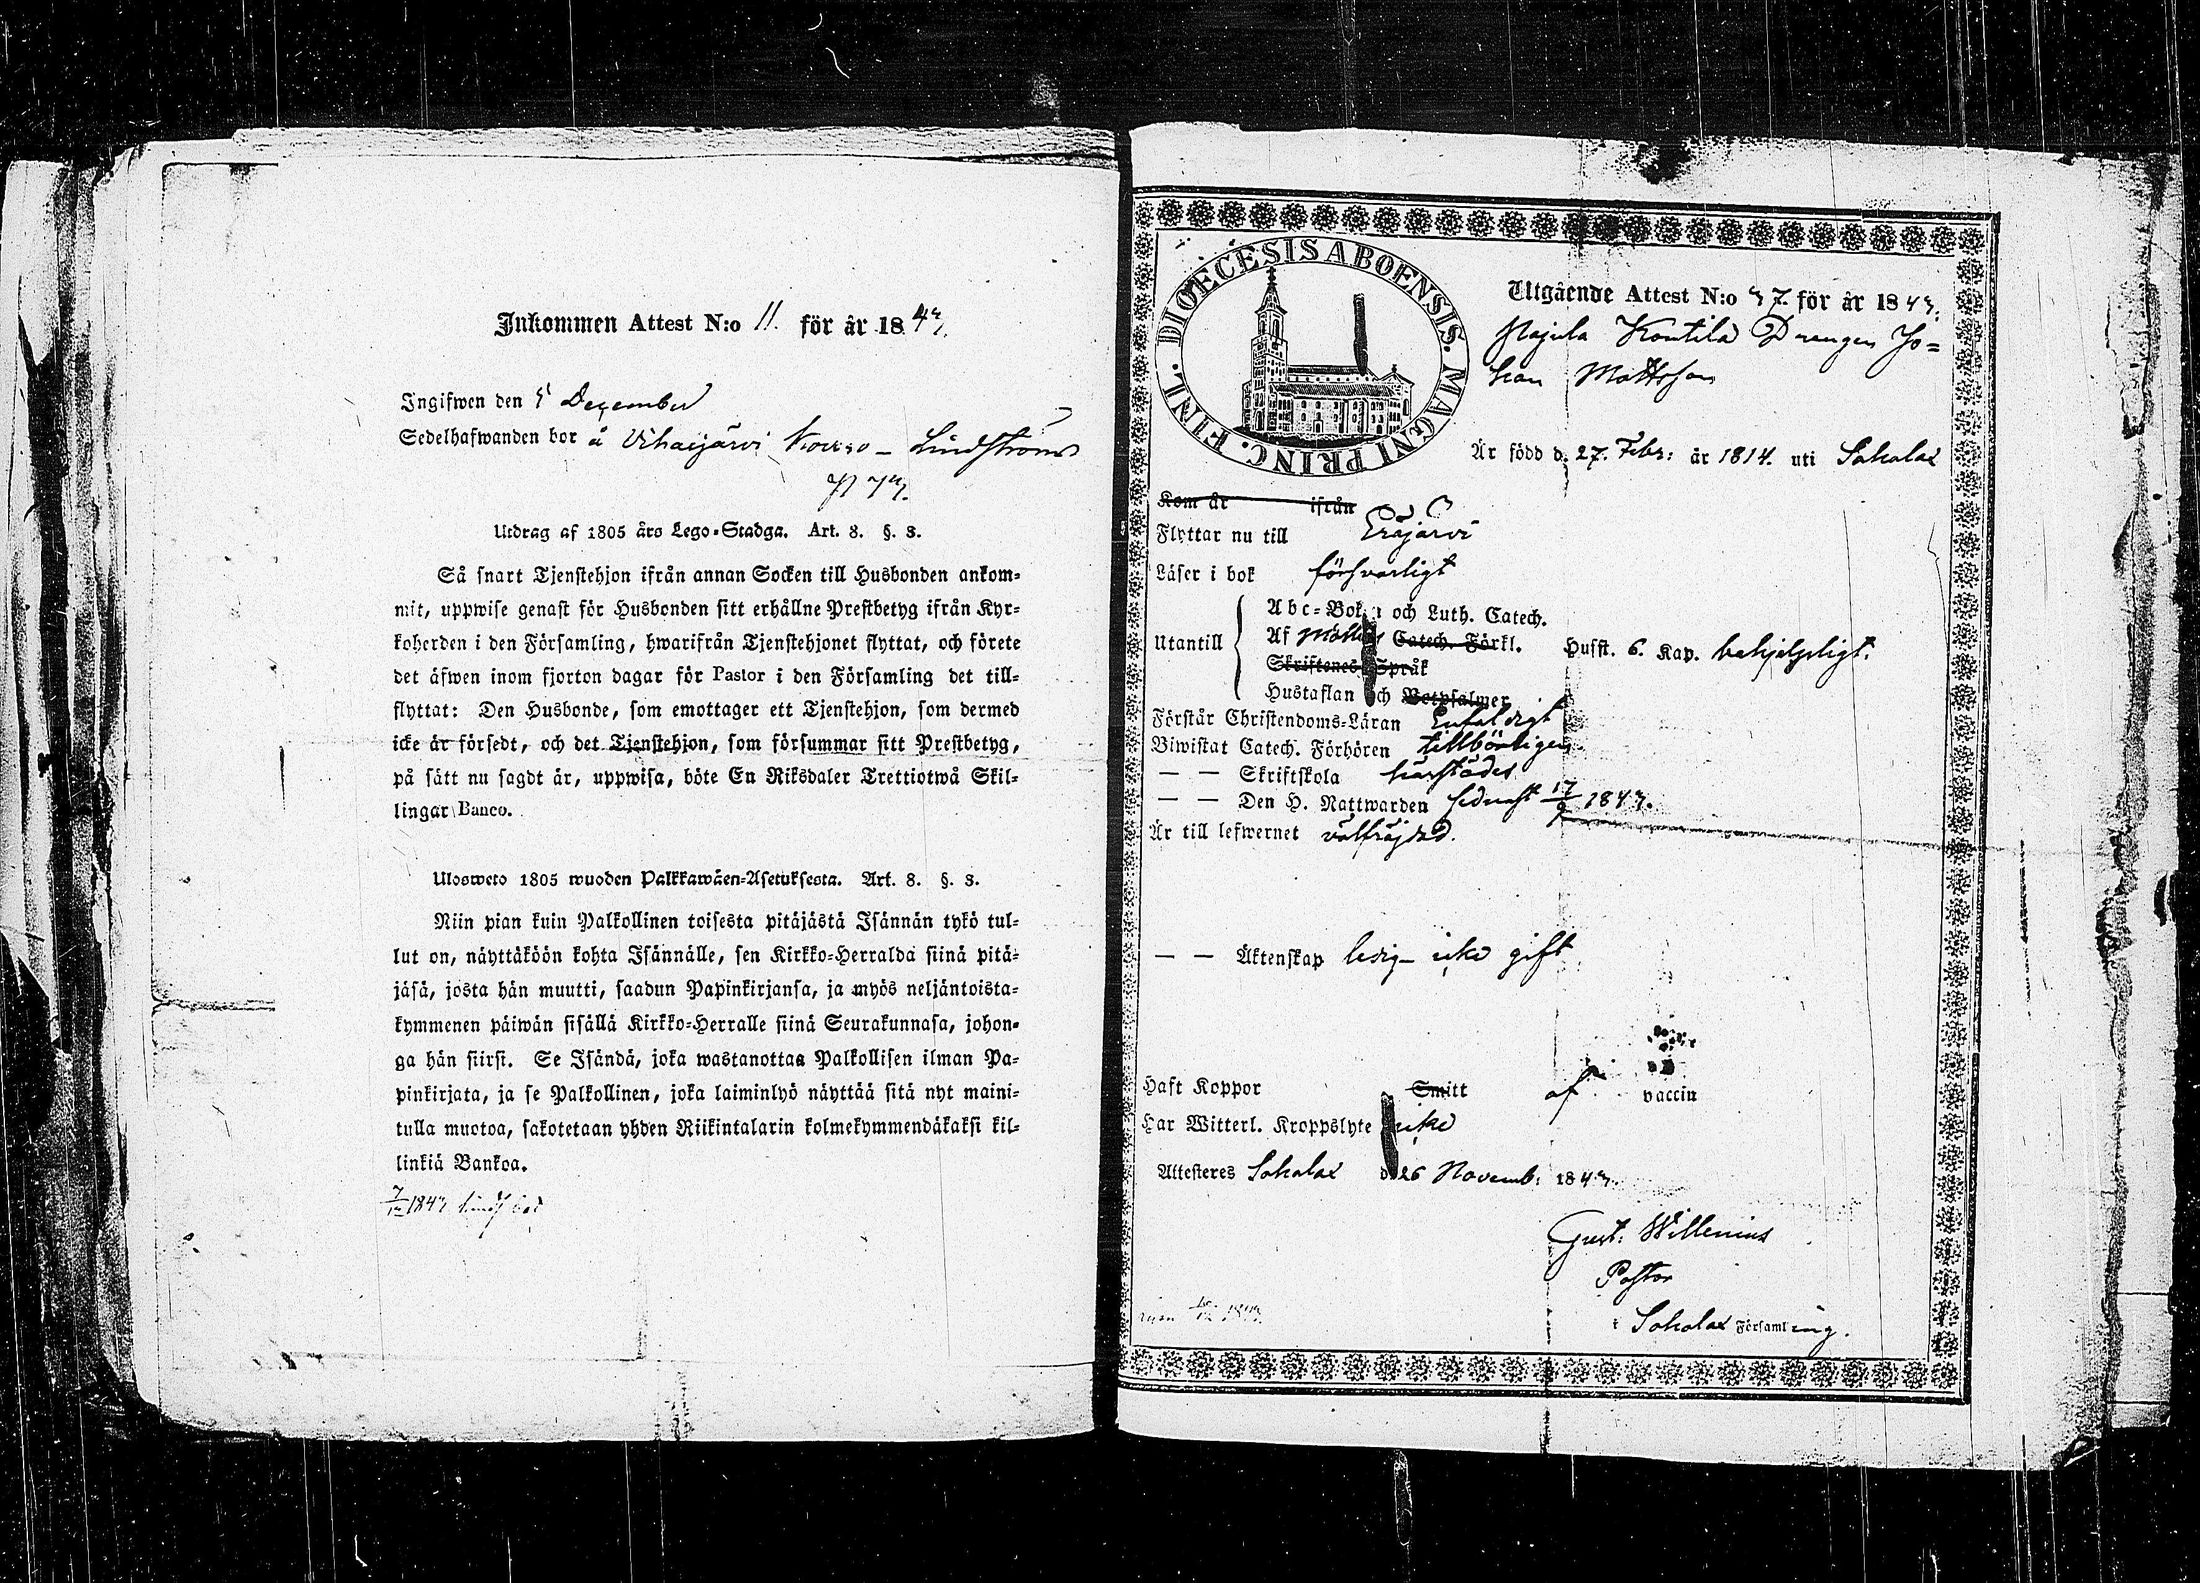 Inkommen Attest N:o 11. för år 1843.
Ingifwen den 5 December
Sedelhafwanden bor å Vihasjärvi - Lindströms
Utdrag af 1805 års Lego-Stadga. Art. 8. §. 3.
Så snart Tjenstehjon ifrån annan Socken till Husbonden ankom-
mit, uppwise genast för Husbonden sitt erhållne Prestbetyg ifrån Kyr-
koherden i den Församling, hwarifrån Tjenstehjonet flyttat, och förete
det äfwen inom fjorton dagar för Pastor i den Församling det till-
flyttat: Den Husbonde, som emottager ett Tjenstehjon, som dermed
icke är försedt, och det Tjenstehjon, som försummar sitt Prestbetyg,
på sätt nu sagdt är, uppwisa, böte En Riksdaler Trettiotwå Skil-
lingar Banco.
Ulosweto 1805 wuoden Palkkawäen-Asetuksesta. Art. 8. §. 3.
Niin pian kuin Palkollinen toisesta pitäjästä Isännän tykö tul-
lut on, näyttäköön kohta Isännälle, sen Kirkko-Herralda siinä pitä-
jäsä, josta hän muutti, saadun Papinkirjansa, ja myös neljäntoista-
kymmenen päiwän sisällä Kirkko-Herralle siinä Seurakunnasa, johon-
ga hän siirsi. Se Isändä, joka wastanottaa Palkollisen ilman Pa-
pinkirjata, ja se Palkollinen, joka laiminlyö näyttää sitä nyt maini-
tulla muotoa, sakotetaan yhden Riikintalarin kolmekymmendäkaksi kil-
linkiä Bankoa.
7/12 1843
DIOECESIS ABOENSIS. MAGNI PRINC. FINL.
Utgående Attest N:o 37. för år 1843.
Kontila Drängen Jo-
han Mattsson
Är född d. 27. Febr: år 1814. uti Sahalax
Kom år ifrån
Flyttar nu till Eräjärvi
Läser i bok försvarligt
Abc-Boken och Luth. Catech.
Utantill Af Catech. Förkl. Husst. 6. Kap. behjelpligt.
Skriftenes Språk
Hustaflan och Botpsalmer
Förstår Christendoms-Läran Enfaldigt
Biwistat Catech. Förhören tillbörligen
— — Skriftskola härstädes
— — Den H. Nattwarden sednast 17/9 1843.
Är till lefwernet välfräjdad.
— — Äktenskap ledig - icke gift
Haft Koppor Smitt af vaccin
Har Witterl. Kroppslyte icke
Attesteres Sahalax d. 26 Novemb: 1843.
Gust: Willenius
Pastor
i Sahalax Församling.